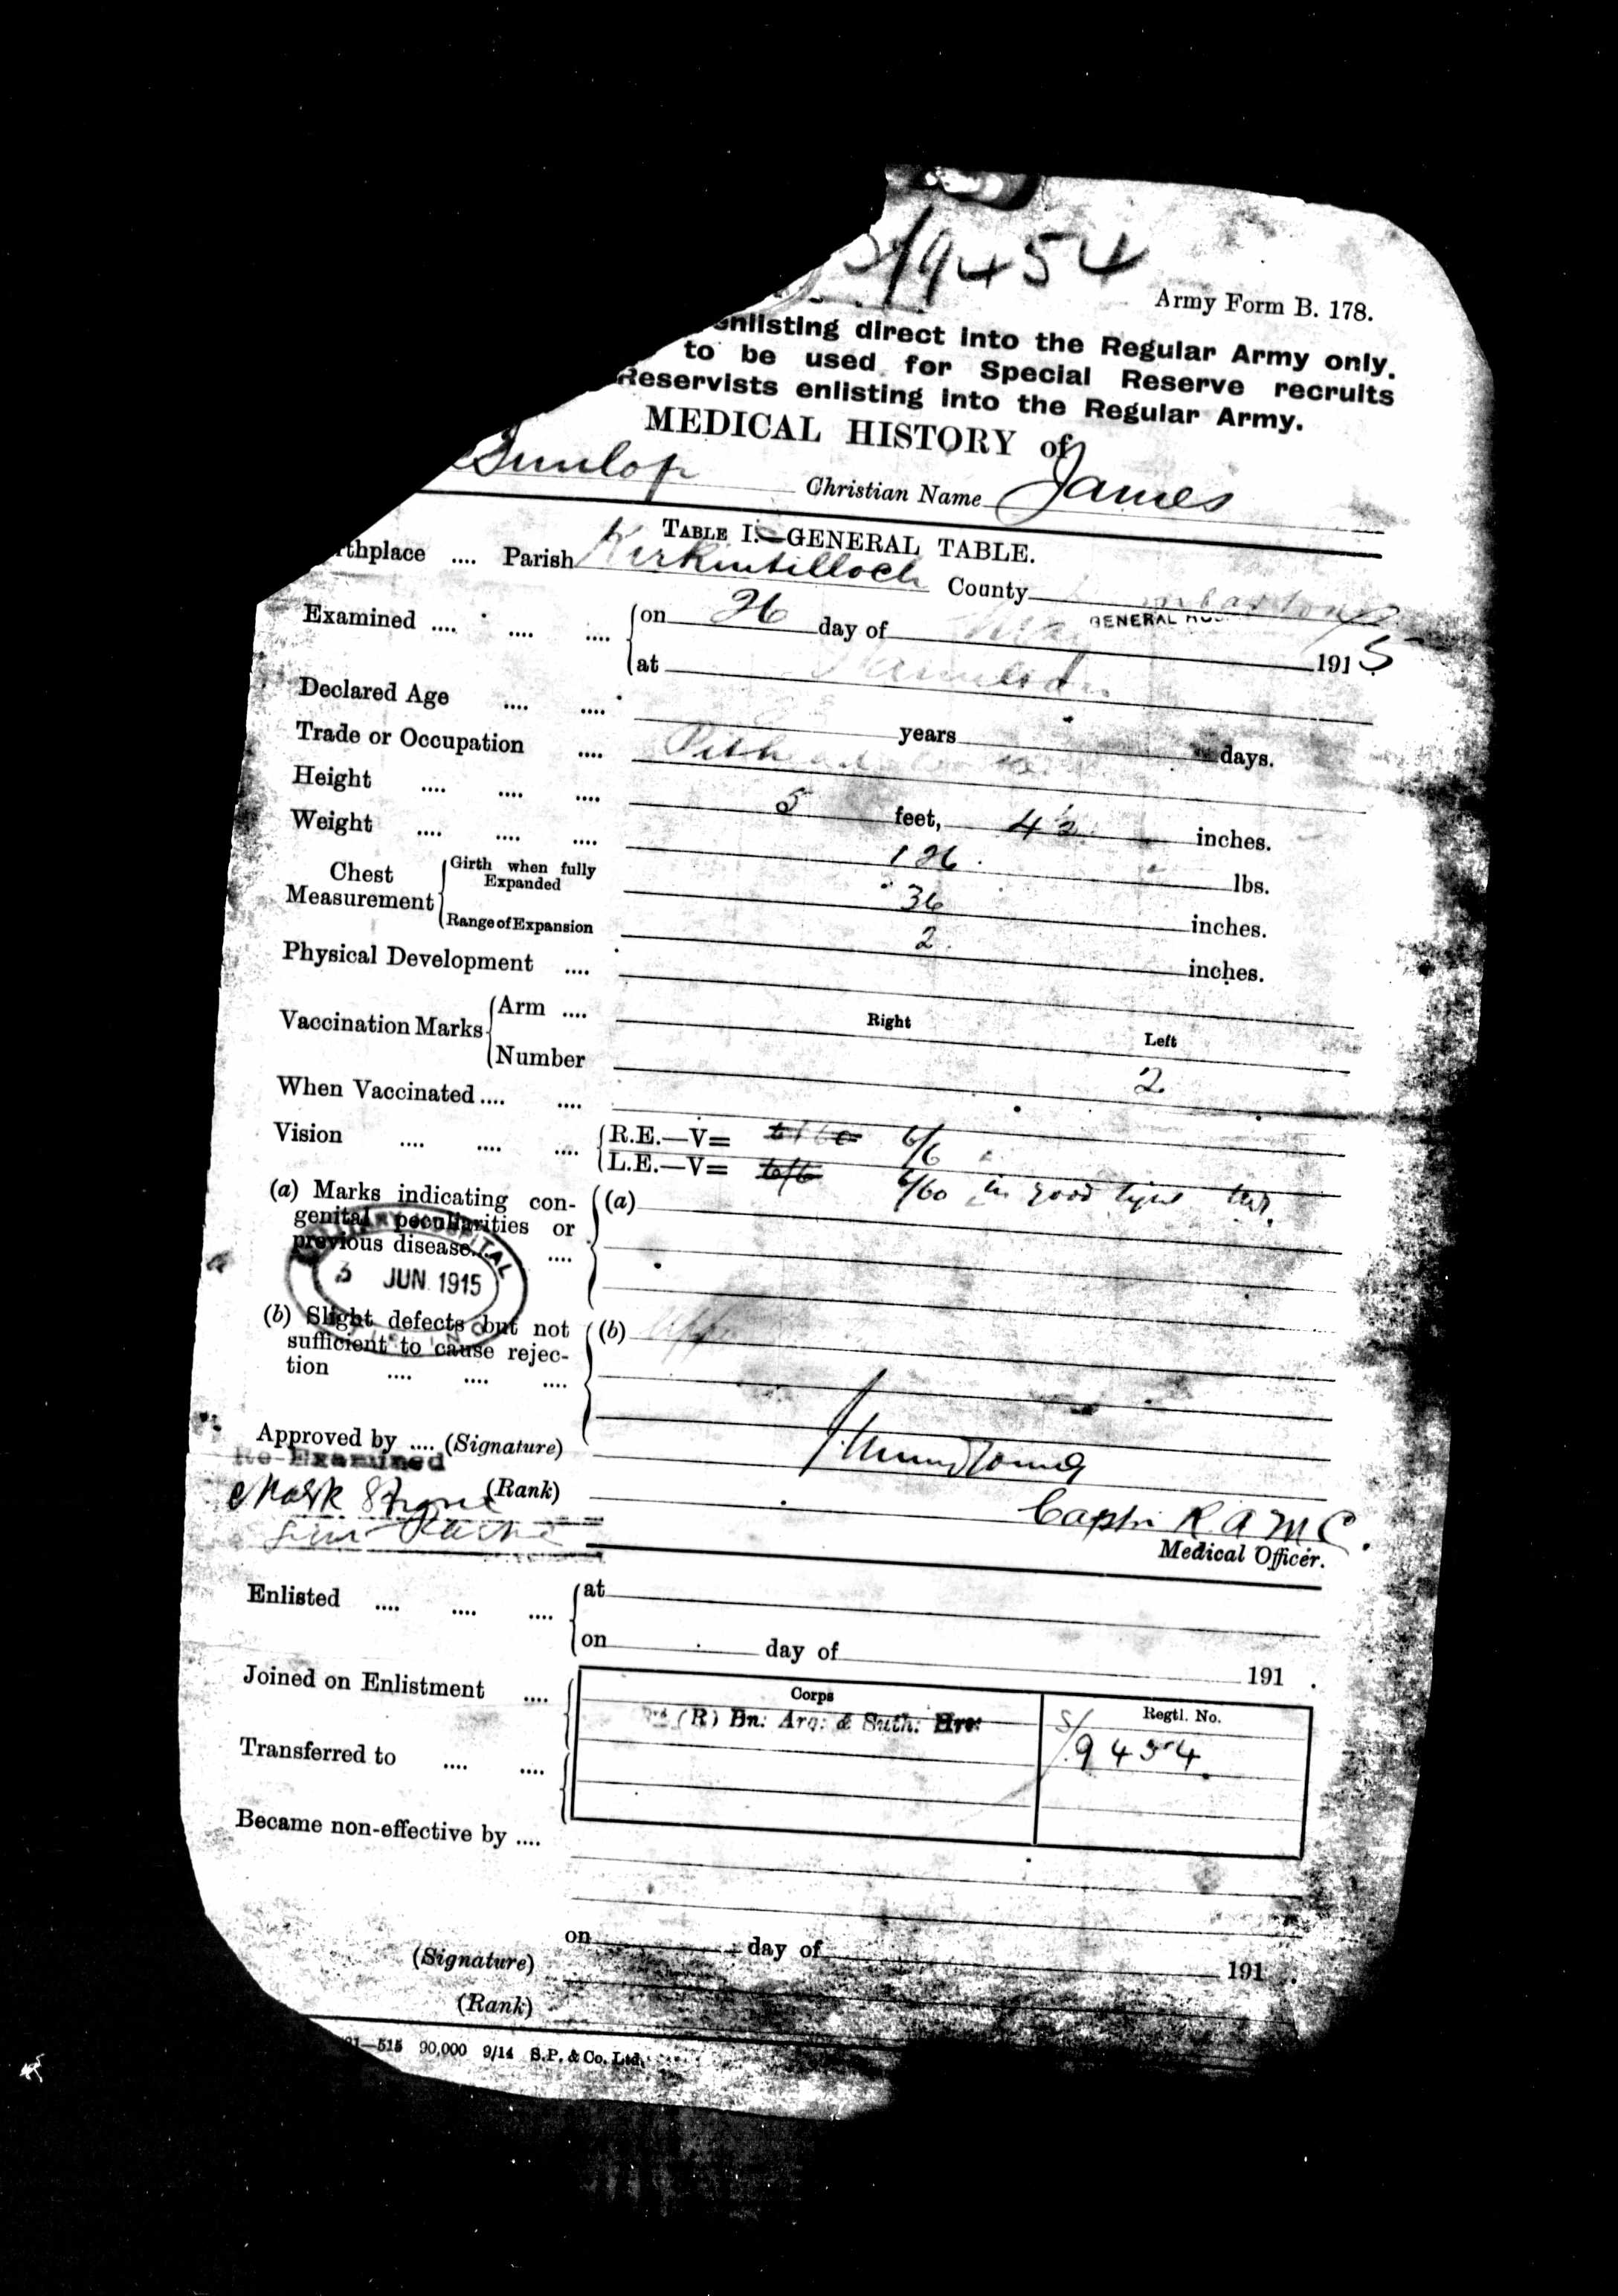 S/9454
Army Form B. 178.
enlisting direct into the Regular Army only.
to be used for Special Reserve recruits
Reservists enlisting into the Regular Army.
MEDICAL HISTORY of
Dunlop Christian Name James
TABLE I.—GENERAL TABLE.
rthplace .... Parish Kirkintilloch County
GENERAL
Examined .... .... .... on 26 day of May 1915
at Hamilton
Declared Age .... .... years days.
Trade or Occupation .... Pithead
Height .... .... .... 5 feet, 4½ inches.
Weight .... .... .... 126 lbs.
Chest Measurement Girth when fully Expanded 36 inches.
Range of Expansion 2 inches.
Physical Development ....
Vaccination Marks Arm .... Right Left
Number 2
When Vaccinated .... ....
Vision .... .... .... R.E.—V= 6/6 6/6
L.E.—V= 6/6 6/60 in good
(a) Marks indicating con-
genital peculiarities or
previous disease.. .... (a)
HOSPITAL
3 JUN 1915
(b) Slight defects but not
sufficient to cause rejec-
tion .... .... .... (b)
Approved by .... (Signature)
Re-Examined
(Rank) Captn R.A.M.C.
Medical Officer.
Enlisted .... .... .... at
on day of 191 .
Joined on Enlistment .... Corps Regtl. No.
(R) Bn: Arg: & Suth: Hrs: S/9454.
Transferred to .... ....
Became non-effective by ....
on day of 191 .
(Signature)
(Rank)
—515 90,000 9/14 S.P. & Co. Ltd.